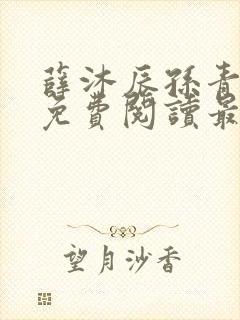 薛沐辰孫青
免費閱讀最
望月沙香